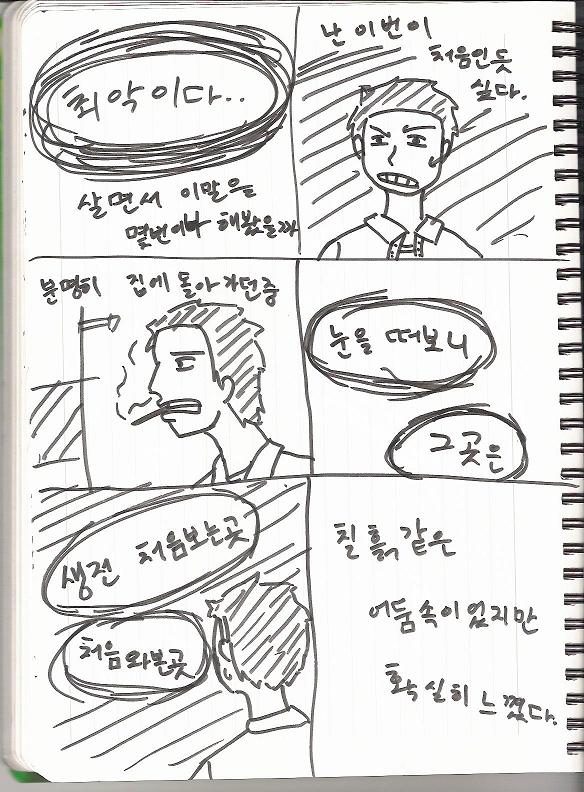 최악이다..
살면서 이말은
몇번이나 해봤을까
난 이번이
처음인듯
싶다.
분명히 집에 돌아가던중
눈을 떠보니
그곳은
생전 처음보는곳
처음와본곳
칠흙같은
어둠속이었지만
확실히 느꼈다.